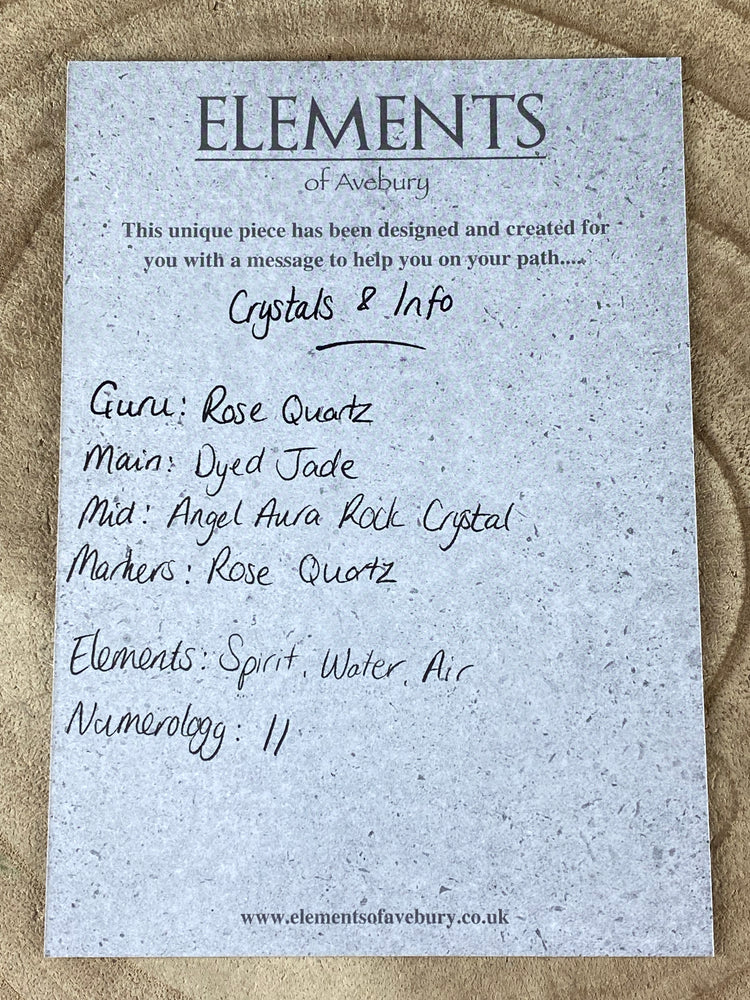 ELEMENTS
of Avebury
This unique piece has been designed and created for
you with a message to help you on your path....
Crystals & Info
Guru: Rose Quartz
Main: Dyed Jade
Mid: Angel Aura Rock Crystal
Markers: Rose Quartz
Elements: Spirit, Water, Air
Numerology: 11
www.elementsofavebury.co.uk